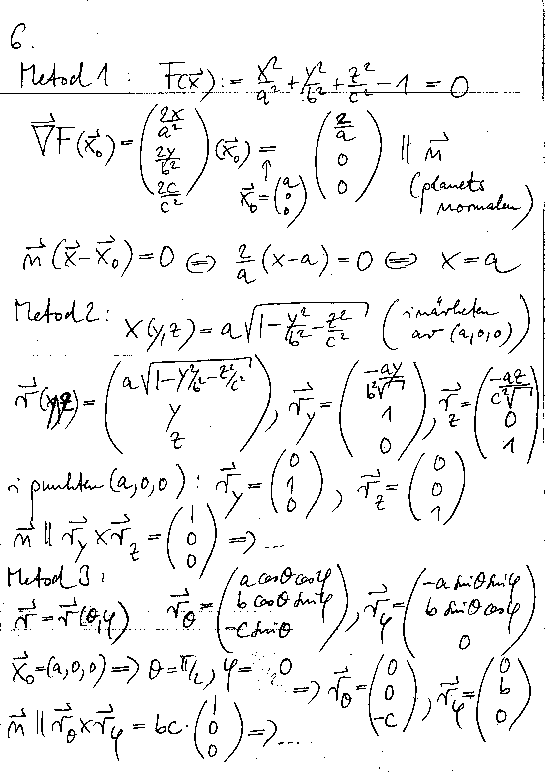 6.
Metod 1: F(x⃗) := x²/a² + y²/b² + z²/c² - 1 = 0
∇⃗F(x⃗₀) = (2x/a², 2y/b², 2c/c²)(x⃗₀) = (2/a, 0, 0) || n⃗
↑ x⃗₀ = (a, 0, 0) (planets normalen)
n⃗(x⃗ - x⃗₀) = 0 ⇔ 2/a (x-a) = 0 ⇔ x = a
Metod 2: x(y,z) = a√(1 - y²/b² - z²/c²) (i närheten av (a,0,0))
r⃗(y,z) = (a√(1 - y²/b² - z²/c²), y, z), r⃗_y = (-ay/(b²√‾), 1, 0), r⃗_z = (-az/(c²√‾), 0, 1)
i punkten (a,0,0): r⃗_y = (0, 1, 0), r⃗_z = (0, 0, 1)
n⃗ || r⃗_y × r⃗_z = (1, 0, 0) ⇒ ...
Metod 3:
r⃗ = r⃗(θ,φ) r⃗_θ = (a cosθ cosφ, b cosθ sinφ, -c sinθ), r⃗_φ = (-a sinθ sinφ, b sinθ cosφ, 0)
x⃗₀ = (a,0,0) ⇒ θ = π/2, φ = 0 ⇒ r⃗_θ = (0, 0, -c), r⃗_φ = (0, b, 0)
n⃗ || r⃗_θ × r⃗_φ = bc · (1, 0, 0) ⇒ ...